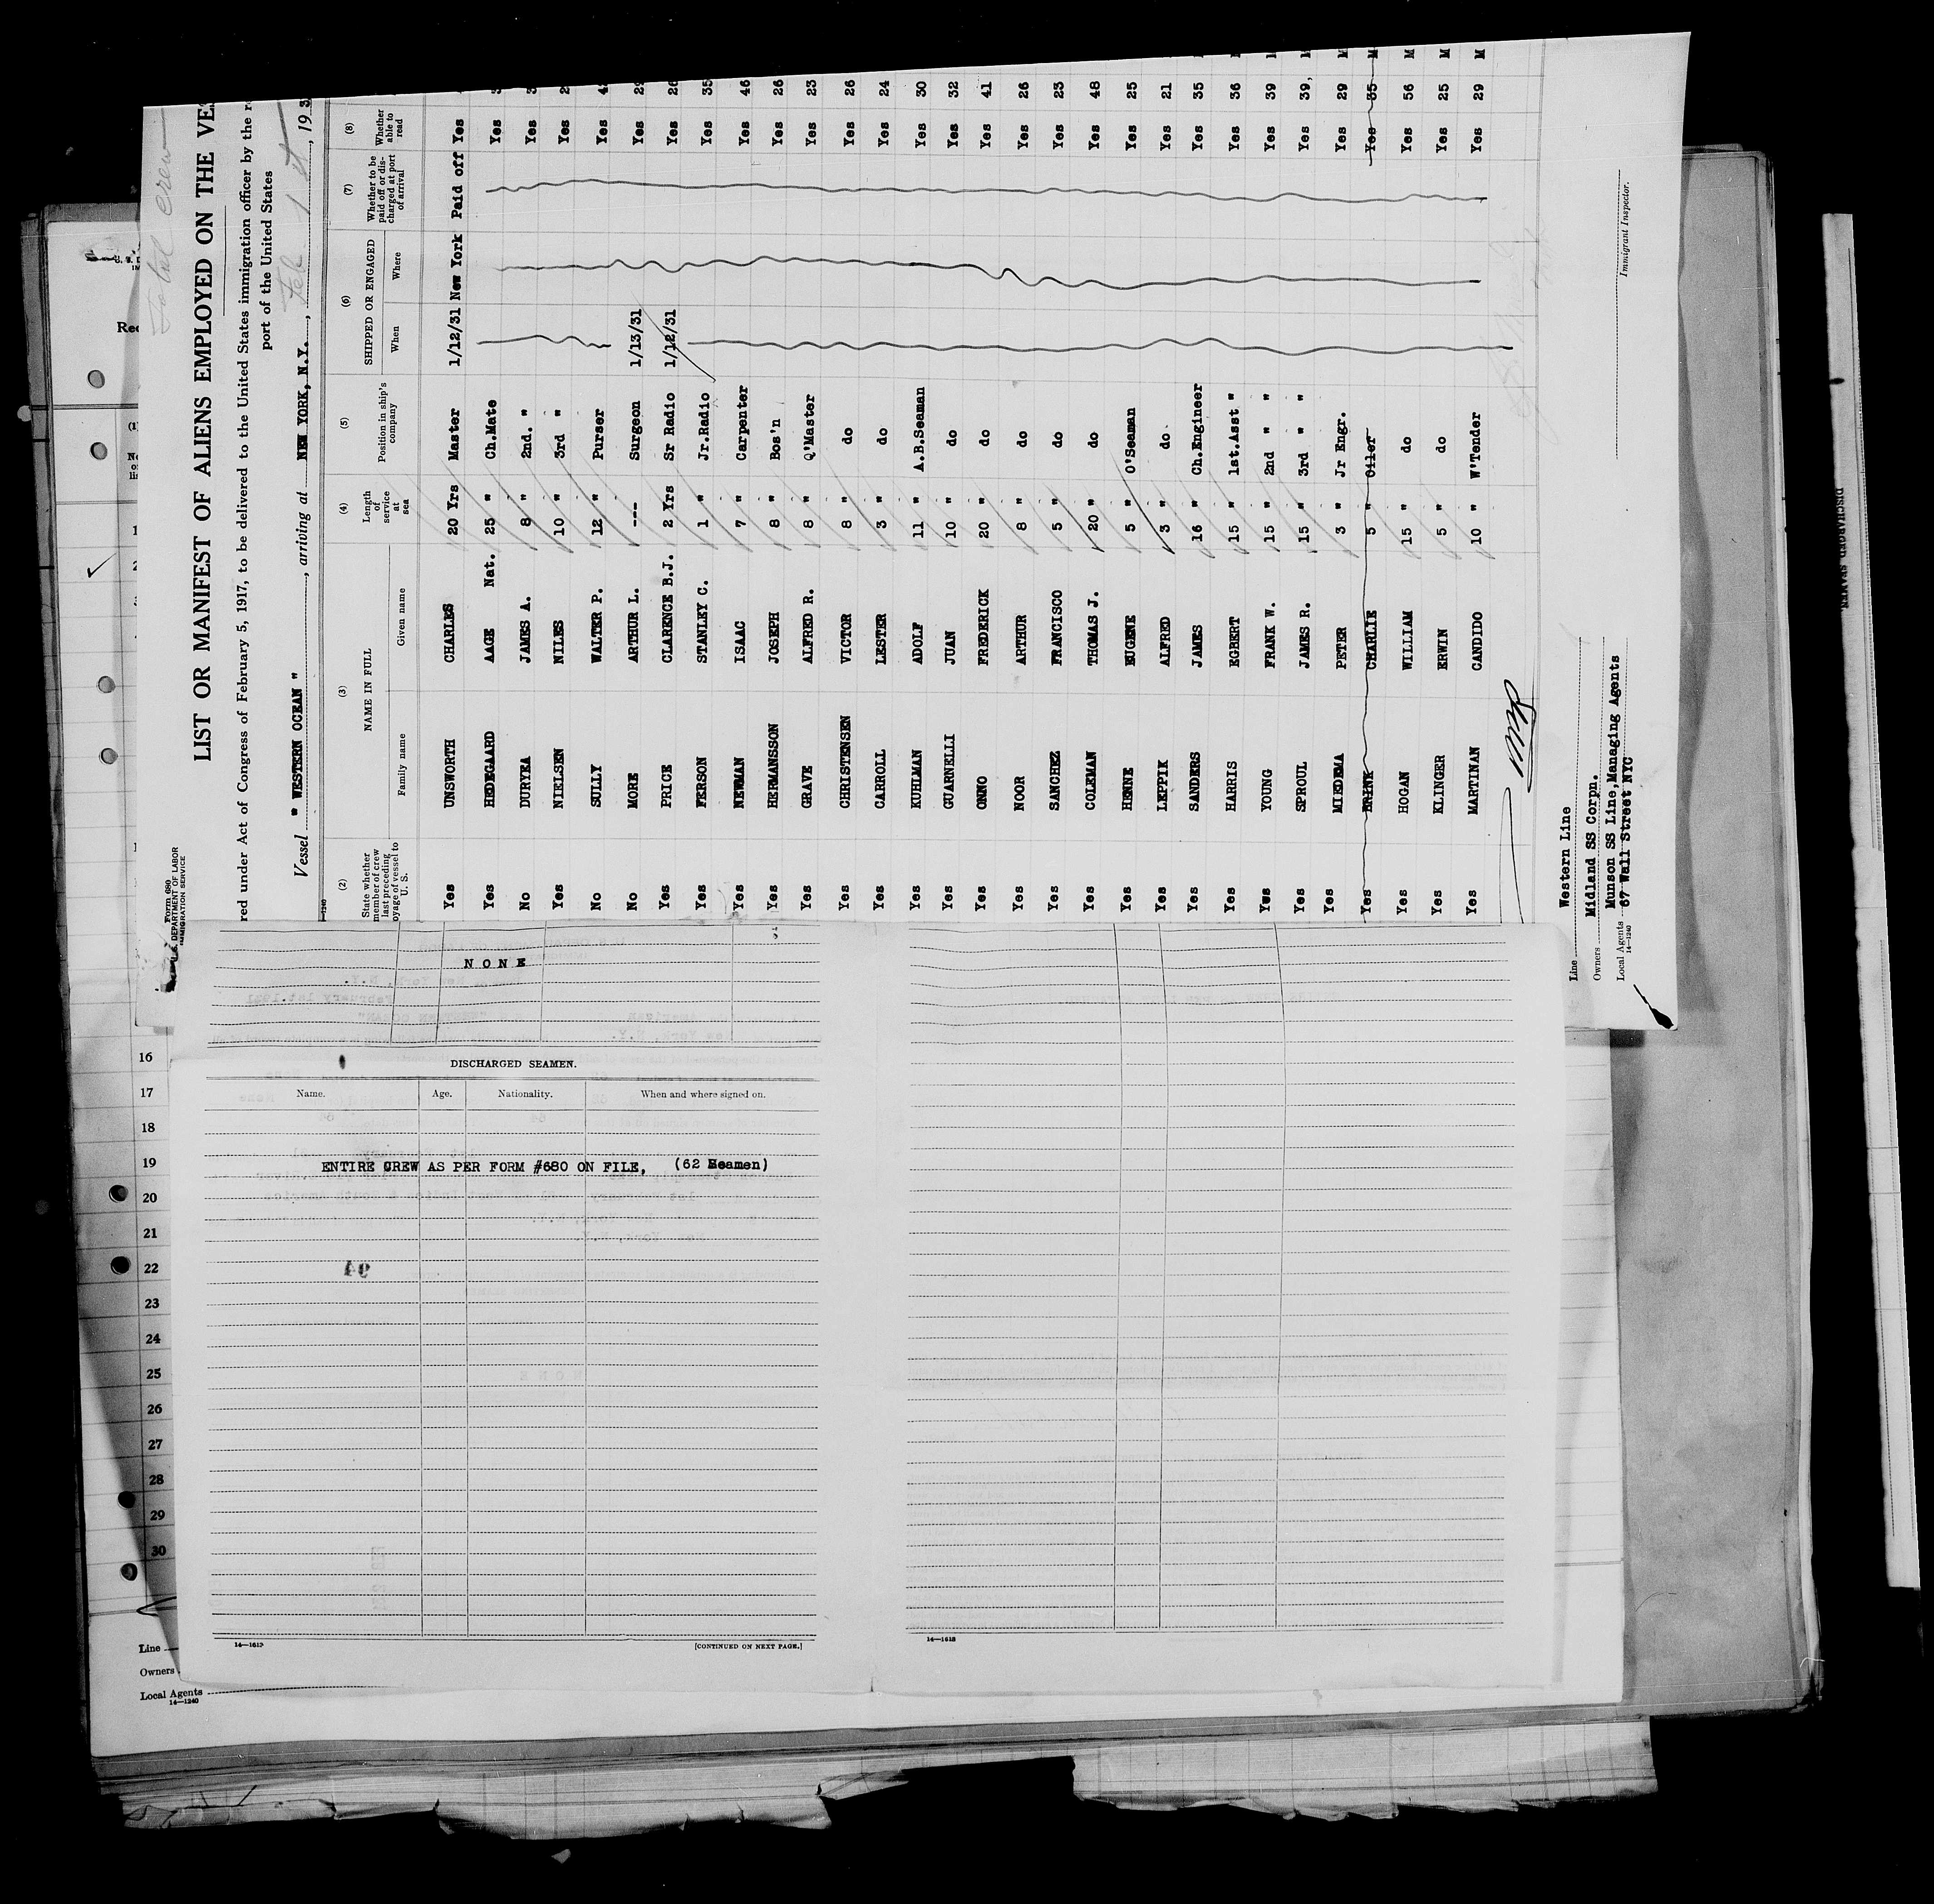 Total crew
Form 680
U.S. DEPARTMENT OF LABOR
IMMIGRATION SERVICE
LIST OR MANIFEST OF ALIENS EMPLOYED ON THE
red under Act of Congress of February 5, 1917, to be delivered to the United States immigration officer by the
port of the United States
Vessel " WESTERN OCEAN " , arriving at NEW YORK, N.Y. , Feb 1 st , 193
14—1240
(2) (3) (4) (5) (6) (7) (8)
State whether member of crew last preceding voyage of vessel to U. S. NAME IN FULL Length of service at sea Position in ship's company SHIPPED OR ENGAGED Whether to be paid off or discharged at port of arrival Whether able to read
Family name Given name When Where
Yes UNSWORTH CHARLES 20 Yrs Master 1/12/31 New York Paid off Yes
Yes HEDEGAARD AAGE Nat. 25 " Ch.Mate Yes
No DURYEA JAMES A. 8 " 2nd. " Yes
Yes NIELSEN NILES 10 " 3rd " Yes
No SULLY WALTER P. 12 " Purser Yes
No MORE ARTHUR L. --- Surgeon 1/13/31 Yes
Yes PRICE CLARENCE B.J. 2 Yrs Sr Radio 1/12/31 Yes 26
Yes FERSON STANLEY C. 1 " Jr.Radio Yes 35
Yes NEWMAN ISAAC 7 " Carpenter Yes 46
Yes HERMANSSON JOSEPH 8 " Bos'n Yes 26
Yes GRAVE ALFRED R. 8 " Q'Master Yes 23
Yes CHRISTENSEN VICTOR 8 " do Yes 26
Yes CARROLL LESTER 3 " do Yes 24
Yes KUHLMAN ADOLF 11 " A.B.Seaman Yes 30
Yes GUARNELLI JUAN 10 " do Yes 32
Yes ONNO FREDERICK 20 " do Yes 41
Yes NOOR ARTHUR 8 " do Yes 26
Yes SANCHEZ FRANCISCO 5 " do Yes 23
Yes COLEMAN THOMAS J. 20 " do Yes 48
Yes HENNE EUGENE 5 " O'Seaman Yes 25
Yes LEPPIK ALFRED 3 " do Yes 21
Yes SANDERS JAMES 16 " Ch.Engineer Yes 35
Yes HARRIS EGBERT 15 " 1st.Asst " Yes 36
Yes YOUNG FRANK W. 15 " 2nd " " Yes 39
Yes SPROUL JAMES R. 15 " 3rd " " Yes 39,
Yes MIEDEMA PETER 3 " Jr Engr. Yes 29 M
Yes BRINK CHARLIE 5 " Oiler Yes 35 M
Yes HOGAN WILLIAM 15 " do Yes 56 M
Yes KLINGER ERWIN 5 " do Yes 25 M
Yes MARTINAN CANDIDO 10 " W'Tender Yes 29 M
Line Western Line
Owners Midland SS Corpn.
Local Agents Munson SS Line,Managing Agents
67 Wall Street NYC
14—1240
Immigrant Inspector.
NONE
DISCHARGED SEAMEN.
Name. Age. Nationality. When and where signed on.
ENTIRE CREW AS PER FORM #680 ON FILE, (62 Seamen)
94
14—1613
[CONTINUED ON NEXT PAGE.]
14—1613
16
17
18
19
20
21
22
23
24
25
26
27
28
29
30
Line
Owners
Local Agents
14—1240
DISCHARGED SEAMEN